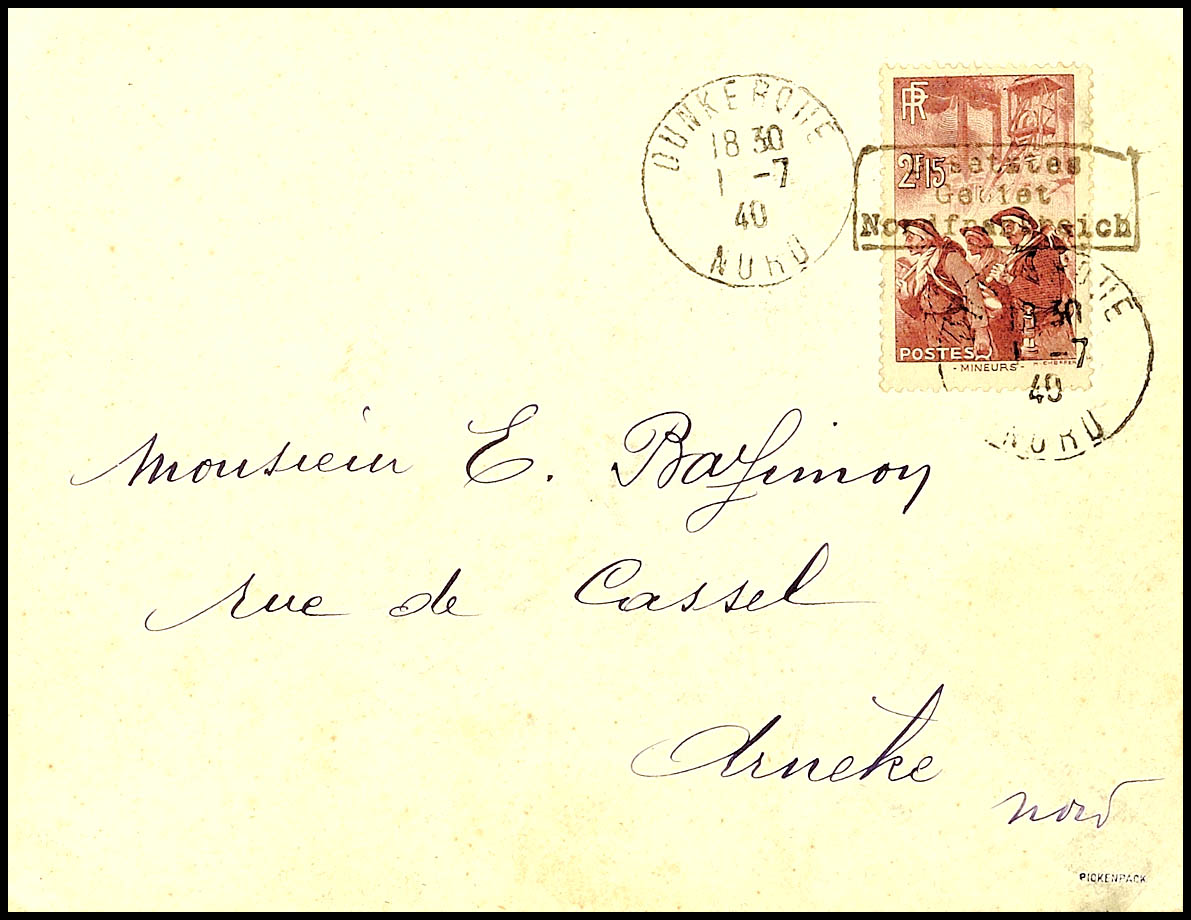 DUNKERQUE
18 30
1 -7
40
NORD
RF
2F15
Besetztes
Gebiet
Nordfrankreich
POSTES
- MINEURS -
18 30
1 -7
40
NORD
Monsieur E.
rue de Cassel
Arneke
Nord
PICKENPACK